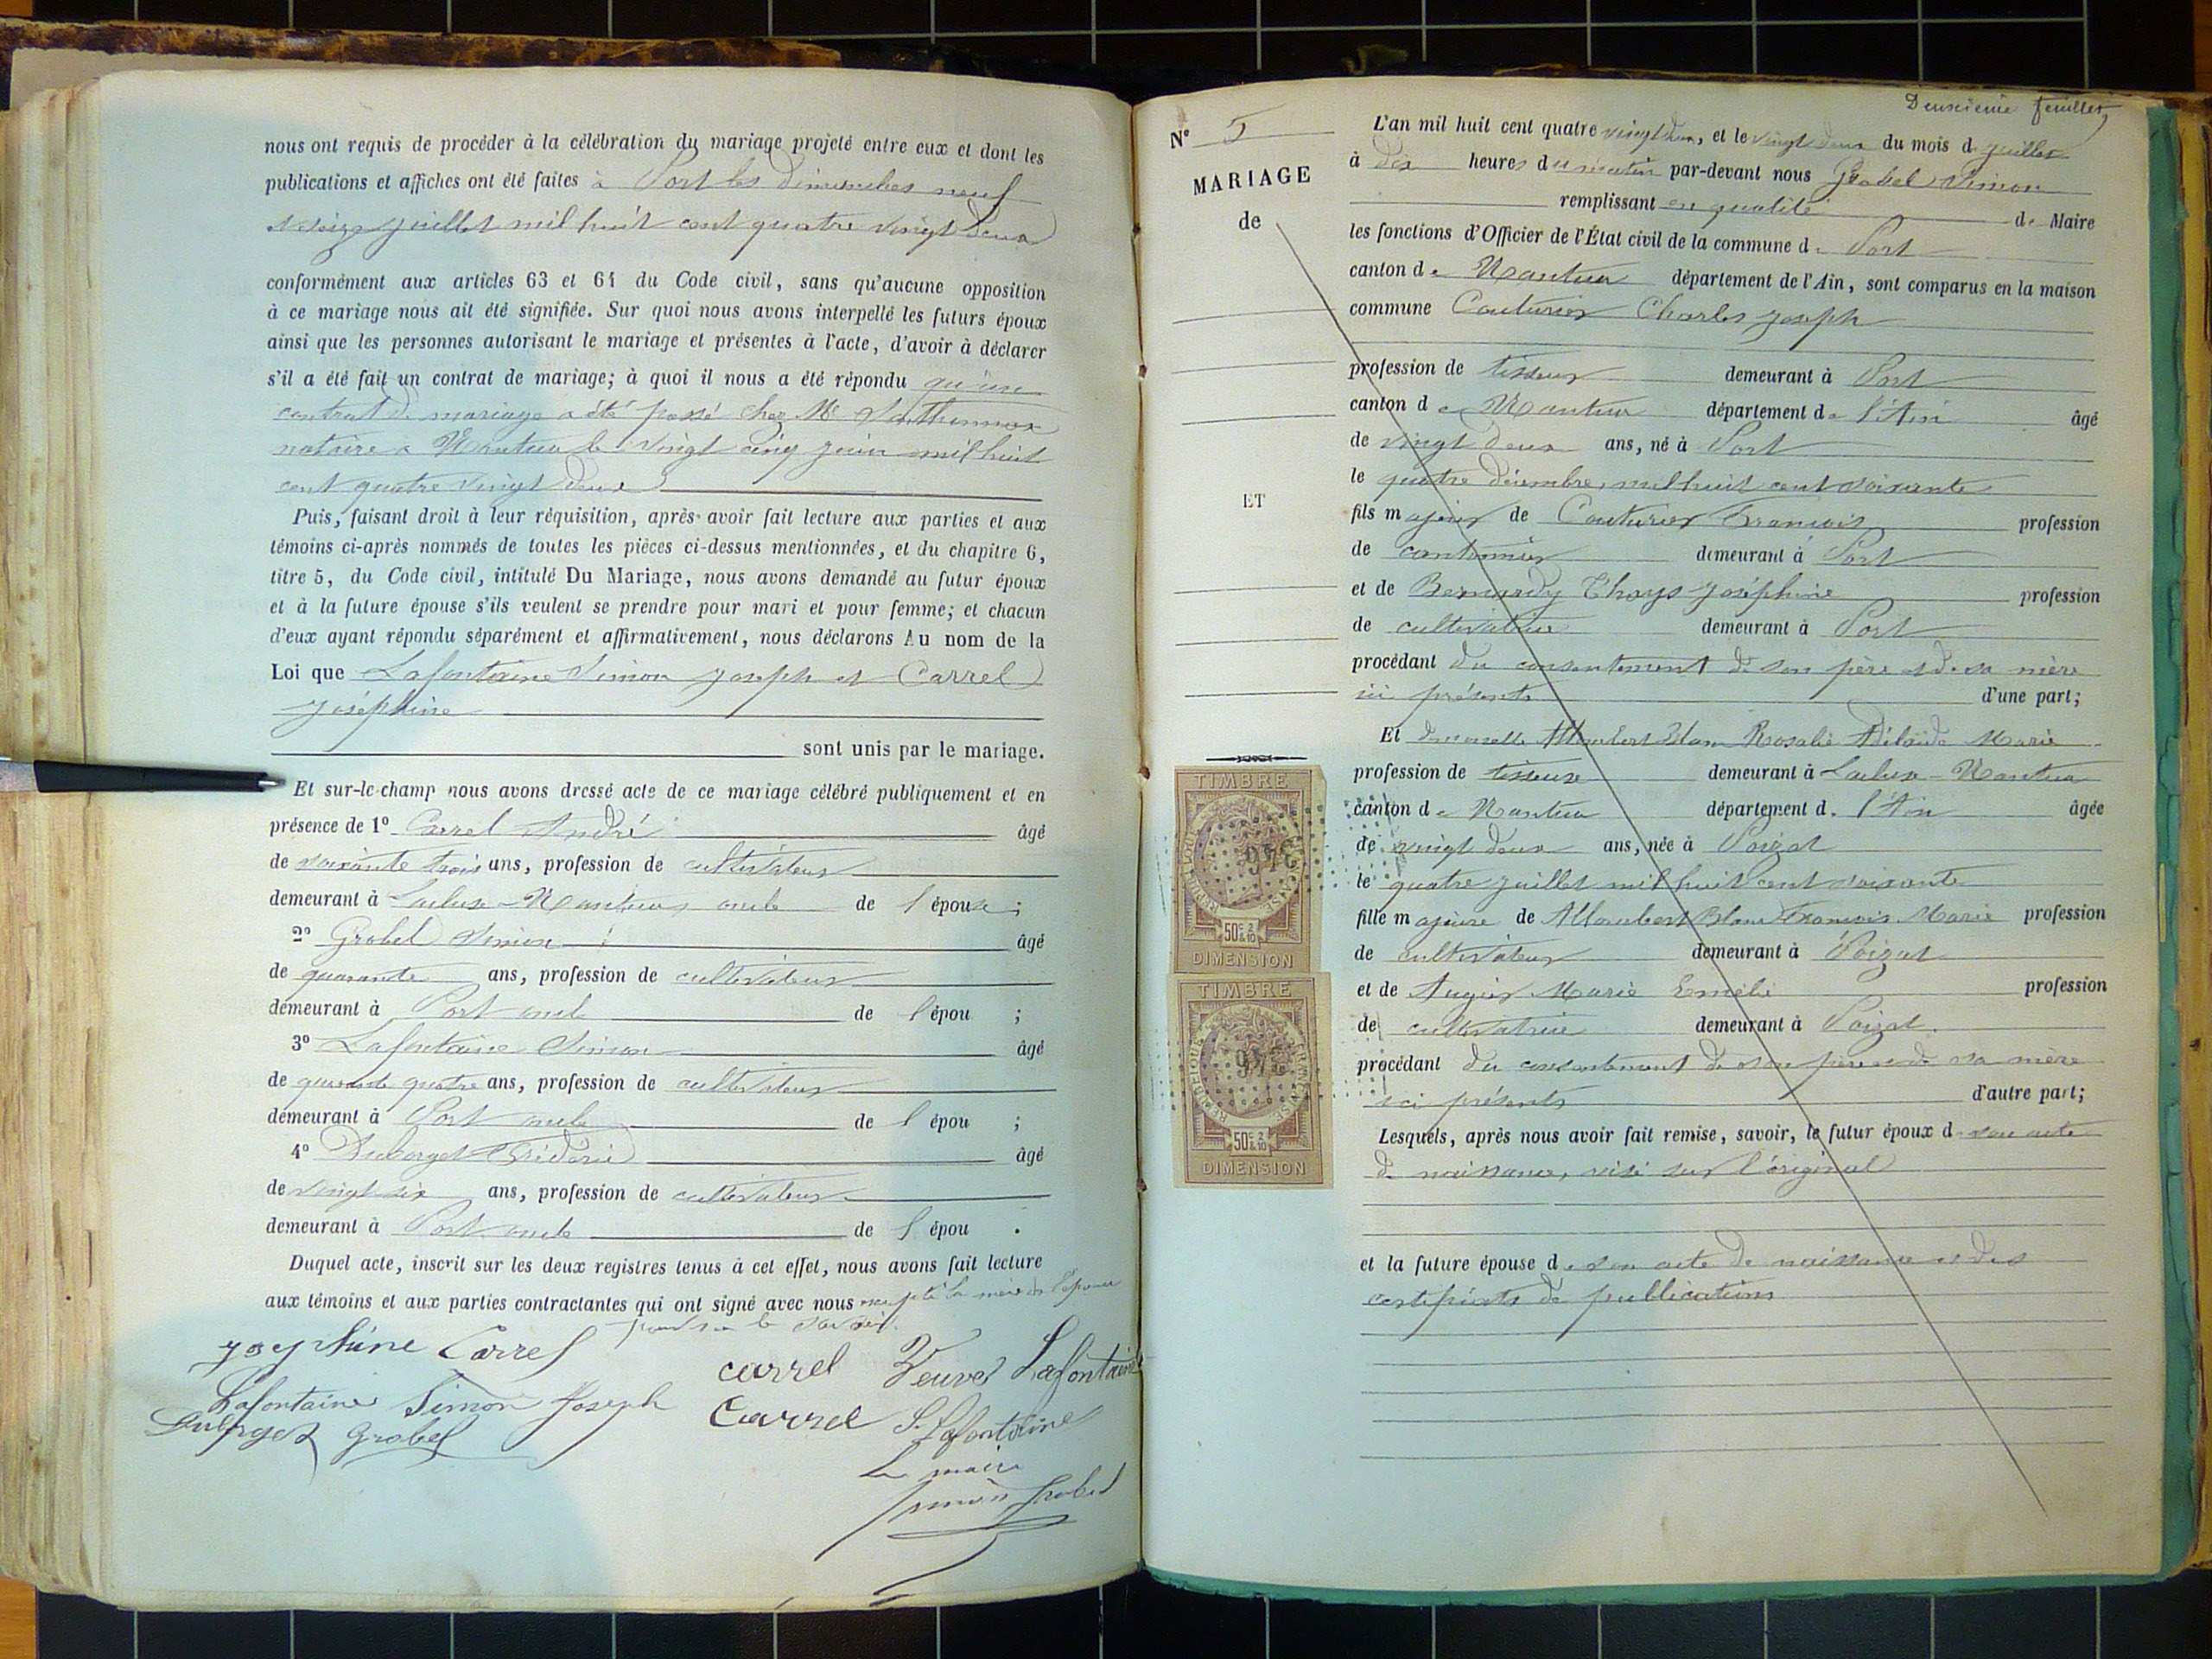 nous ont requis de procéder à la célébration du mariage projeté entre eux et dont les
publications et affiches ont été faites à Port les dimanches neuf
et seize juillet mil huit cent quatre vingt deux
conformément aux articles 63 et 64 du Code civil, sans qu'aucune opposition
à ce mariage nous ait été signifiée. Sur quoi nous avons interpellé les futurs époux
ainsi que les personnes autorisant le mariage et présentes à l'acte, d'avoir à déclarer
s'il a été fait un contrat de mariage; à quoi il nous a été répondu qu'un
contrat de mariage a été passé chez Me
notaire à Nantua le vingt cinq juin mil huit
cent quatre vingt deux
Puis, faisant droit à leur réquisition, après avoir fait lecture aux parties et aux
témoins ci-après nommés de toutes les pièces ci-dessus mentionnées, et du chapitre 6,
titre 5, du Code civil, intitulé Du Mariage, nous avons demandé au futur époux
et à la future épouse s'ils veulent se prendre pour mari et pour femme; et chacun
d'eux ayant répondu séparément et affirmativement, nous déclarons Au nom de la
Loi que Lafontaine Simon Joseph et Carrel
Joséphine
sont unis par le mariage.
Et sur-le-champ nous avons dressé acte de ce mariage célébré publiquement et en
présence de 1º Carrel André âgé
de soixante trois ans, profession de cultivateur
demeurant à Lacluse-Nantua, oncle de l'épouse;
2º Grobel Simon âgé
de quarante ans, profession de cultivateur
demeurant à Port oncle de l'épou ;
3º Lafontaine Simon âgé
de quarante quatre ans, profession de cultivateur
demeurant à Port oncle de l'épou ;
4º Duborget Frédéric âgé
de vingt six ans, profession de cultivateur
demeurant à Port oncle de l'épou .
Duquel acte, inscrit sur les deux registres tenus à cet effet, nous avons fait lecture
aux témoins et aux parties contractantes qui ont signé avec nous excepté la mère de l'épouse
pour ne le savoir.
Joséphine Carrel
carrel Veuve Lafontaine
Lafontaine Simon Joseph
Carrel S. Lafontaine
Duborget Grobel
Le maire
Simon Grobel
Deuxième feuillet
Nº 5
MARIAGE
de
ET
TIMBRE
RÉPUBLIQUE FRANÇAISE
976
50c 2/10
DIMENSION
TIMBRE
RÉPUBLIQUE FRANÇAISE
976
50c 2/10
DIMENSION
L'an mil huit cent quatre vingt deux, et le vingt deux du mois de juillet
à dix heures du matin par-devant nous Grobel Simon
remplissant en qualité de Maire
les fonctions d'Officier de l'État civil de la commune de Port
canton de Nantua département de l'Ain, sont comparus en la maison
commune Couturier Charles Joseph
profession de tisseur demeurant à Port
canton de Nantua département de l'Ain âgé
de vingt deux ans, né à Port
le quatre décembre, mil huit cent soixante
fils majeur de Couturier François profession
de cantonnier demeurant à Port
et de Bernardy Thays Joséphine profession
de cultivatrice demeurant à Port
procédant du consentement de son père et de sa mère
ici présents d'une part;
Et demoiselle Allombert Blanc Rosalie Adélaïde Marie
profession de tisseuse demeurant à Lacluse-Nantua
canton de Nantua département de l'Ain âgée
de vingt deux ans, née à Poizat
le quatre juillet mil huit cent soixante
fille majeure de Allombert Blanc François Marie profession
de cultivateur demeurant à Poizat
et de Augier Marie Emélie profession
de cultivatrice demeurant à Poizat.
procédant du consentement de son père et de sa mère
ici présents d'autre part;
Lesquels, après nous avoir fait remise, savoir, le futur époux de son acte
de naissance, visé sur l'original
et la future épouse de son acte de naissance et des
certificats de publications